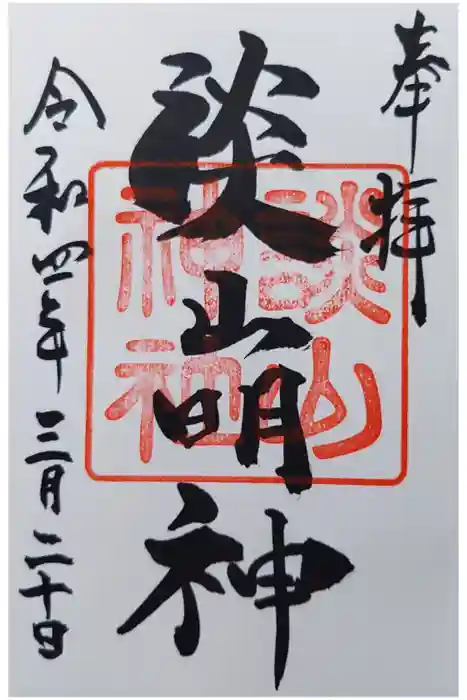 奉拝
談山明神
令和四年三月二十日
談山
神